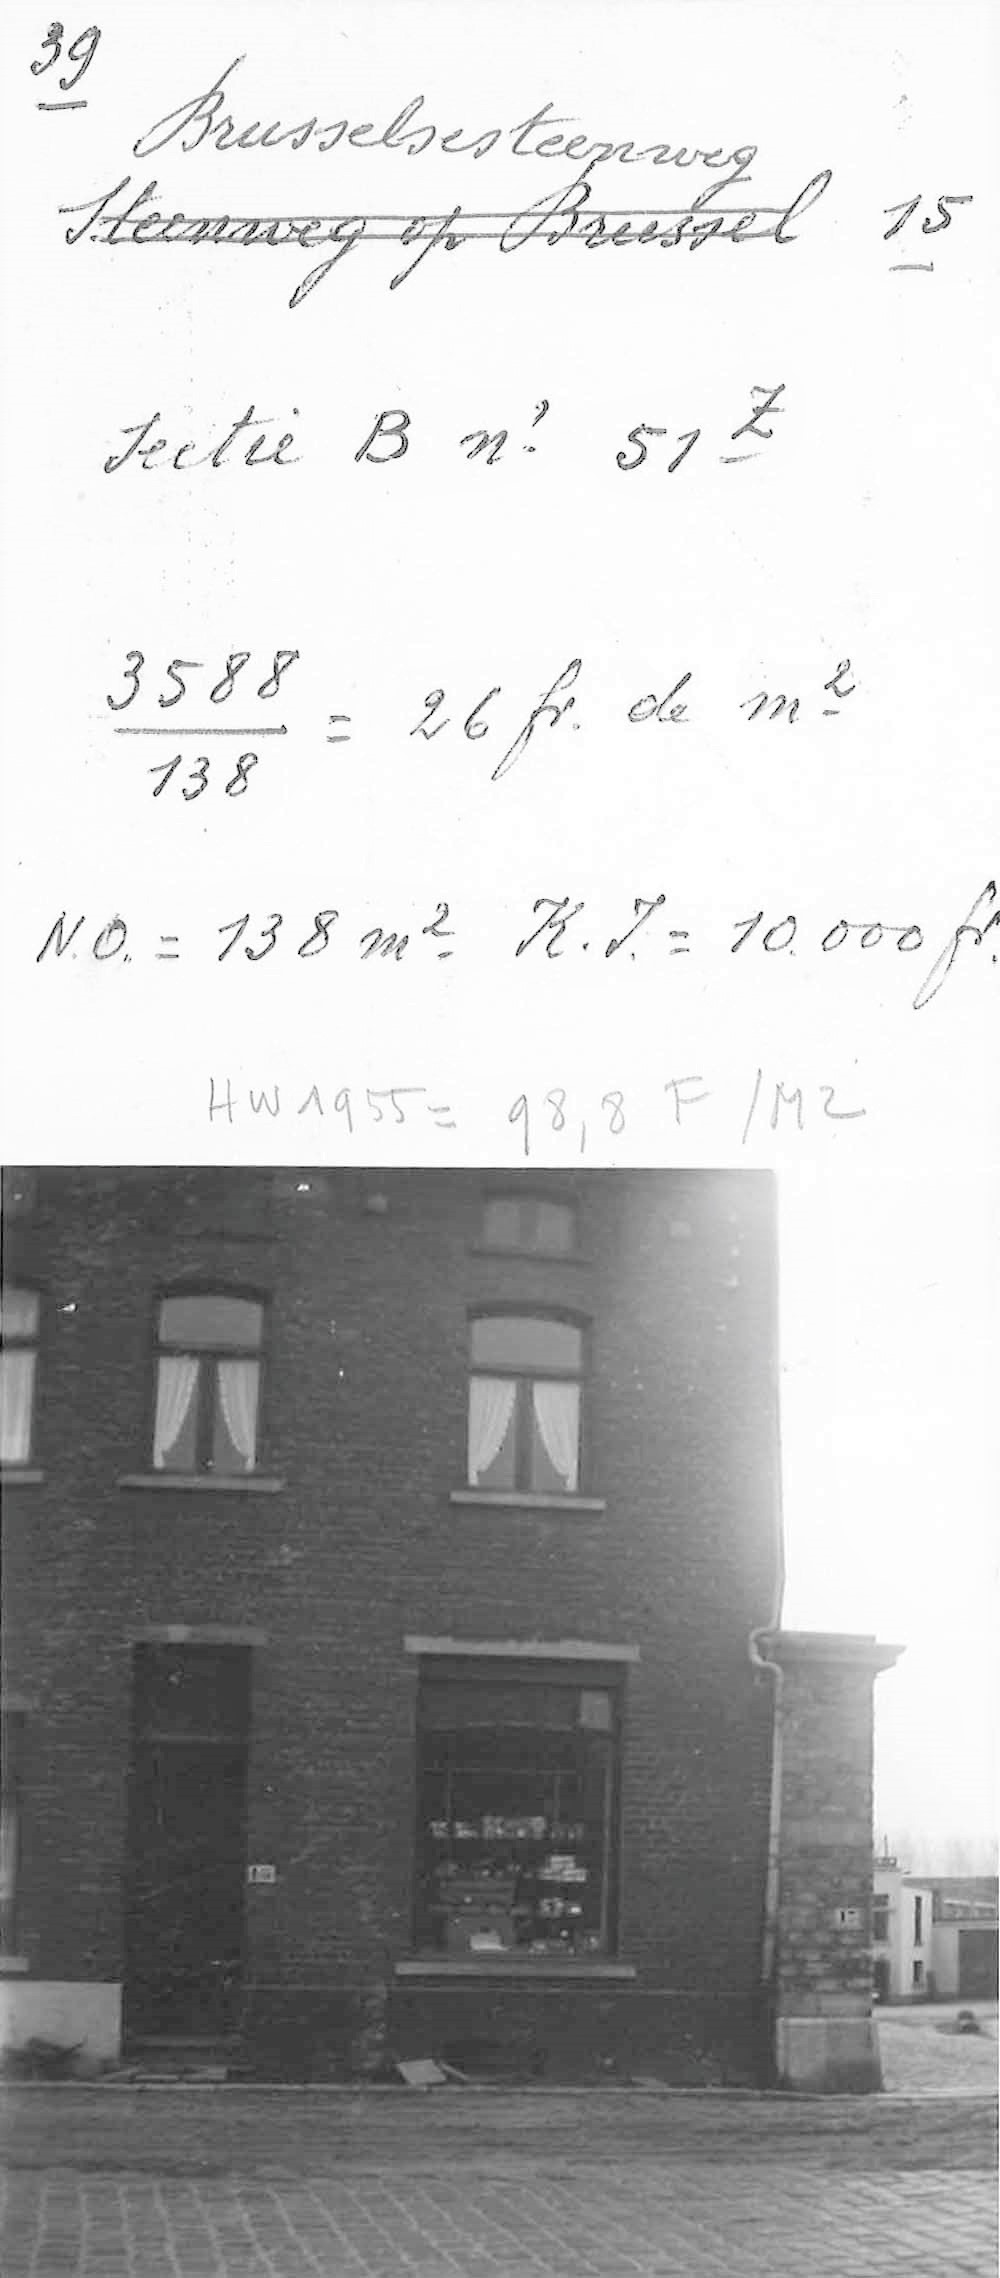 39
Brusselsesteenweg
Steenweg op Brussel 15
Sectie B nr 51 Z
3588
138
= 26 fr. de m²
N.O. = 138 m² K.I. = 10.000 fr.
HW 1955 = 98,8 F /M2